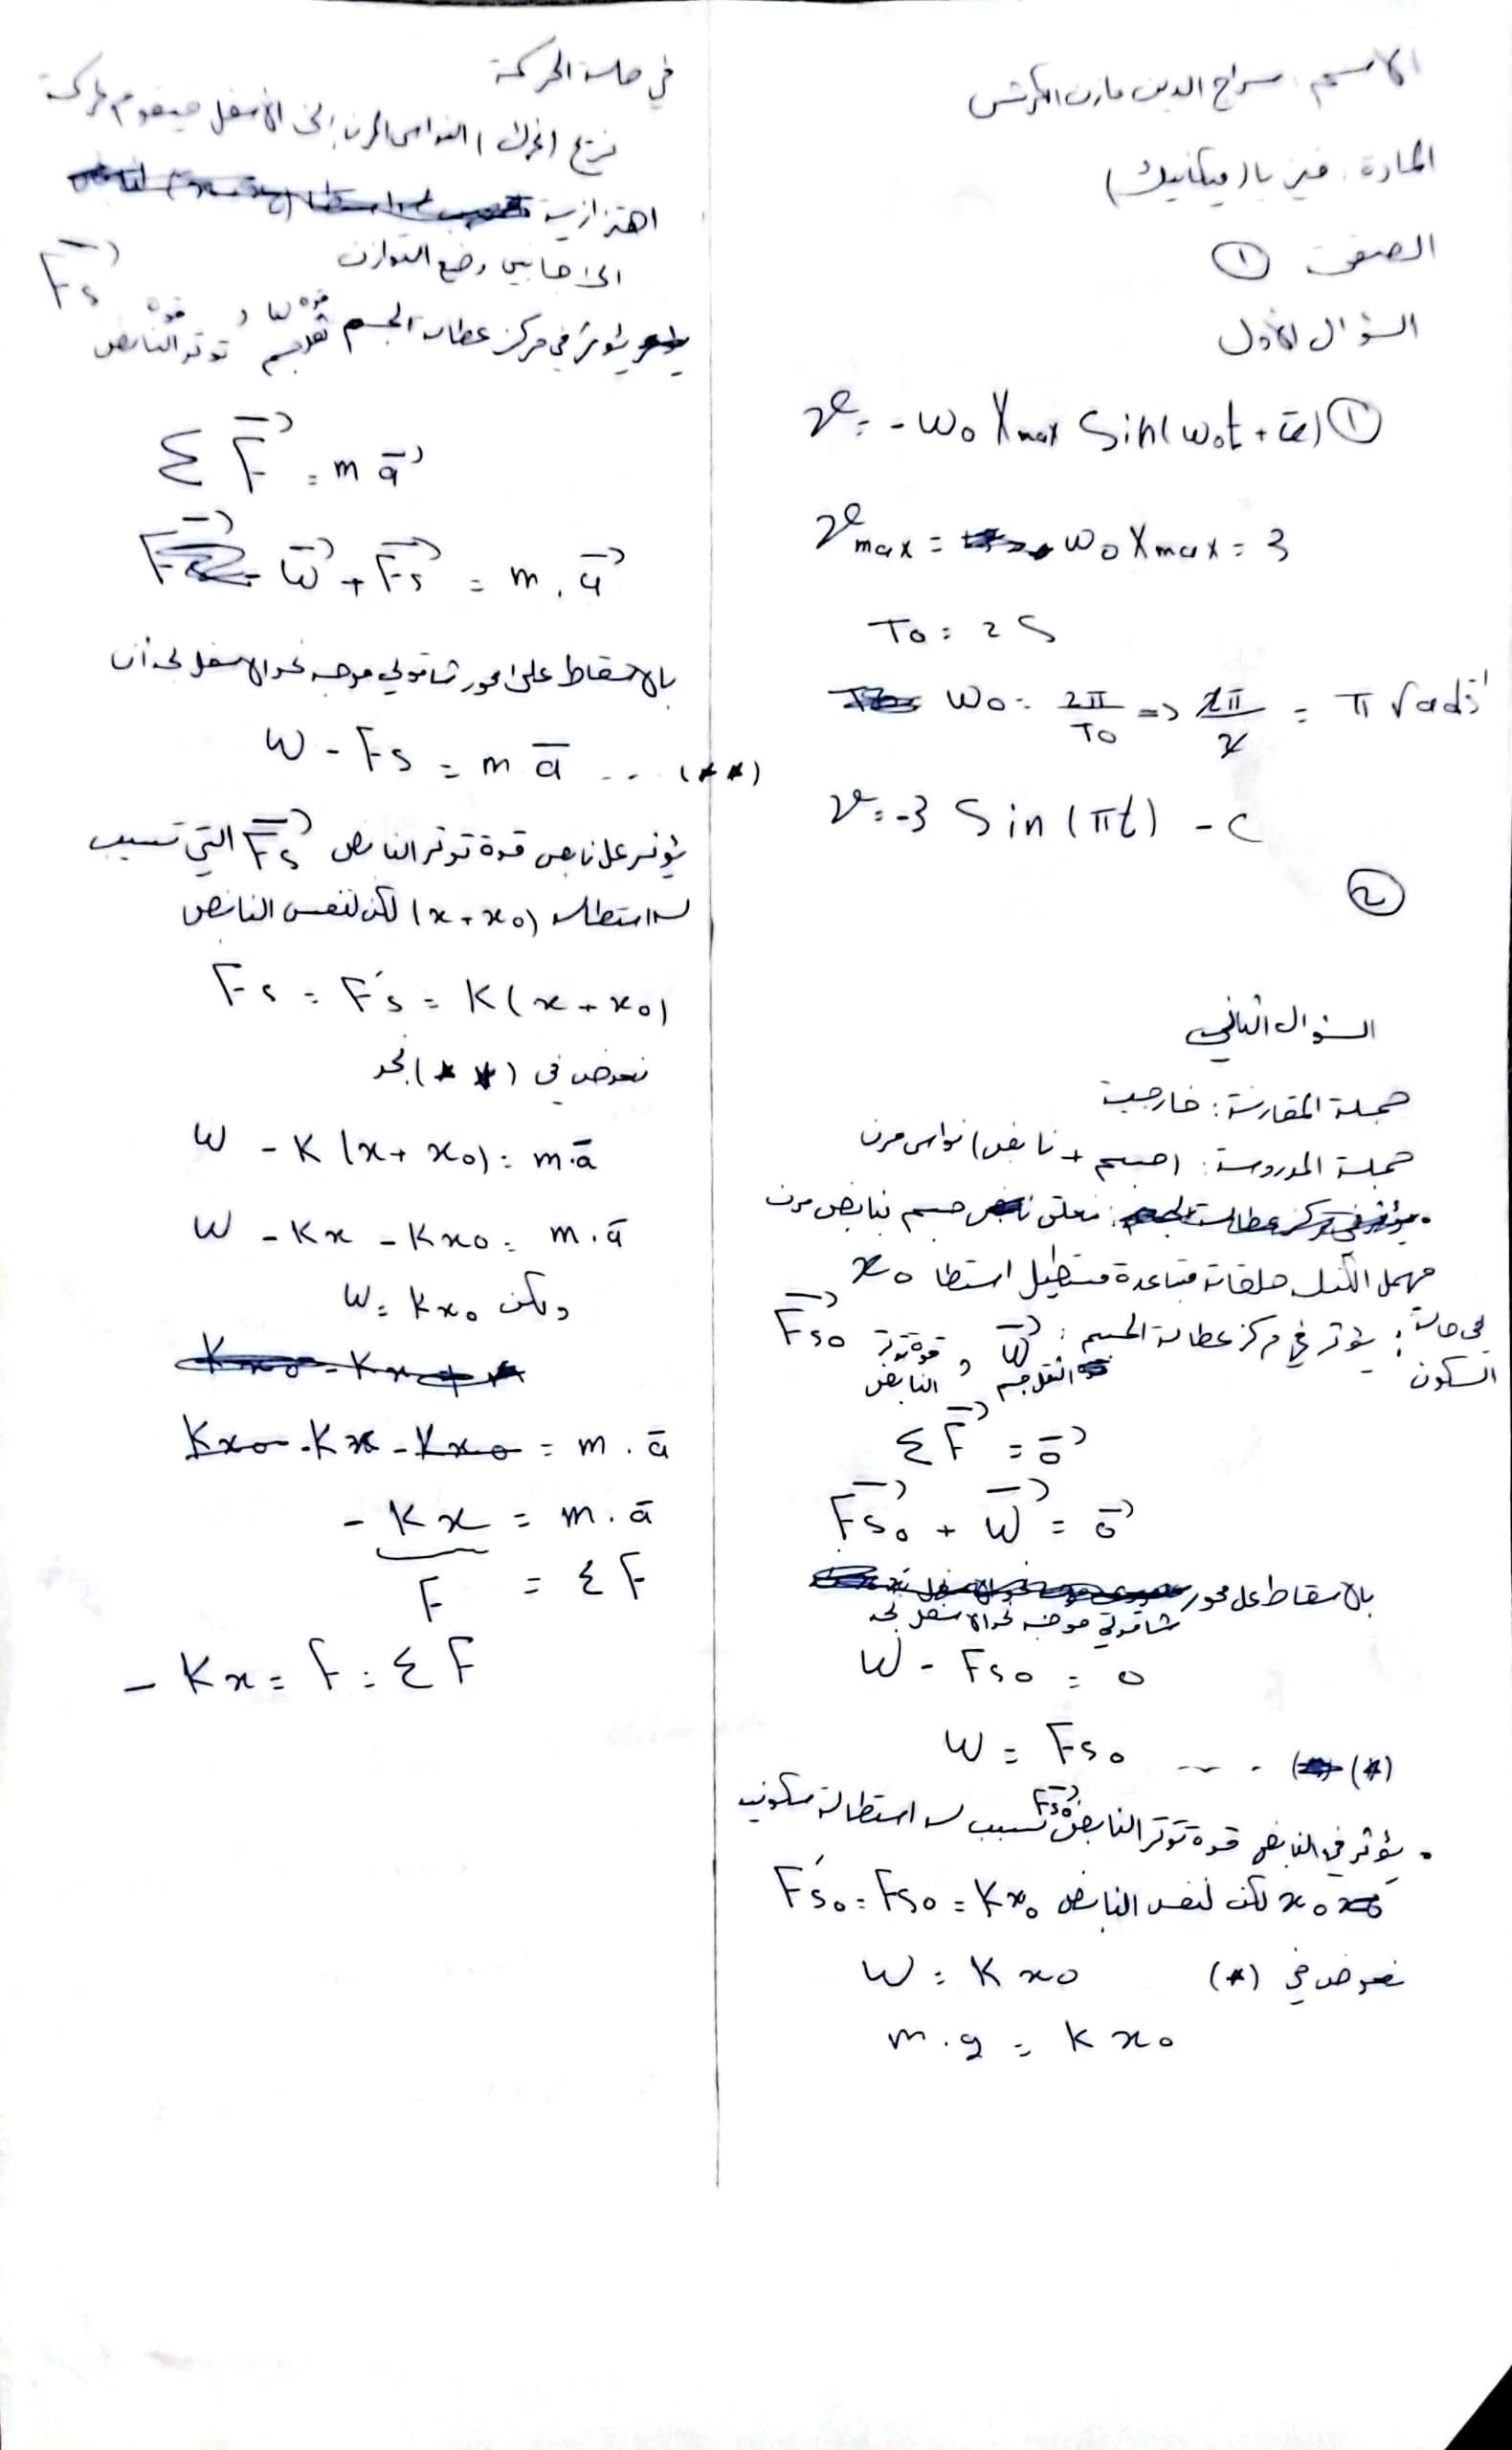 الاسم: سراج الدين مازن
المادة: فيزيا (ميكانيك)
الصفحة ①
السؤال الأول
v = - ω₀ Xmax Sin(ω₀t + φ̄) ①
vmax = ω₀ Xmax = 3
T₀ = 2 S
ω₀ = 2π/T₀ => 2π/2 = π rad s⁻¹
v = -3 Sin (πt) - C
②
السؤال الثاني
جملة المقارنة: خارجية
جملة المدروسة: (جسم + نابض) نواس مرن
نعلق جسم بنابض مرن
مهمل الكتلة حلقاته متباعدة فيستطيل استطا x₀
في حالة السكون: يؤثر في مركز عطالة الجسم: W⃗ الثقل جسم و قوة توتر النابض F⃗s₀
Σ F⃗ = 0⃗
F⃗s₀ + W⃗ = 0⃗
بالاسقاط على محور
شاقولي موجه نحو الاسفل نجد
W - Fs₀ = 0
W = Fs₀ ---- (*)
. يؤثر في النابض قوة توتر النابض F⃗s₀ تسبب له استطالة سكونية
x₀ لكن لنفس النابض F's₀ = Fs₀ = Kx₀
نعوض في (*) W = K x₀
m . g = K x₀
في حالة الحركة
نزيح (نحرك) النواس المرن إلى الأسفل فيقوم بحركة
اهتزازية
إلى جانبي وضع التوازن
يؤثر في مركز عطالة الجسم قوة ثقل جسم W و قوة توتر النابض F⃗s
Σ F⃗ = m a⃗
W⃗ + F⃗s = m . a⃗
بالاسقاط على محور شاقولي موجه نحو الاسفل نجد أن
W - Fs = m ā ... (**)
يؤثر على نابض قوة توتر النابض F⃗s التي تسبب
له استطالة (x + x₀) لكن لنفس النابض
Fs = F's = K(x + x₀)
نعوض في (**) نجد
W - K (x + x₀) = m.ā
W - Kx - Kx₀ = m.ā
ولكن W = Kx₀
Kx₀ - Kx - Kx₀ = m . ā
- Kx = m . ā
F = Σ F
- Kx = F = Σ F